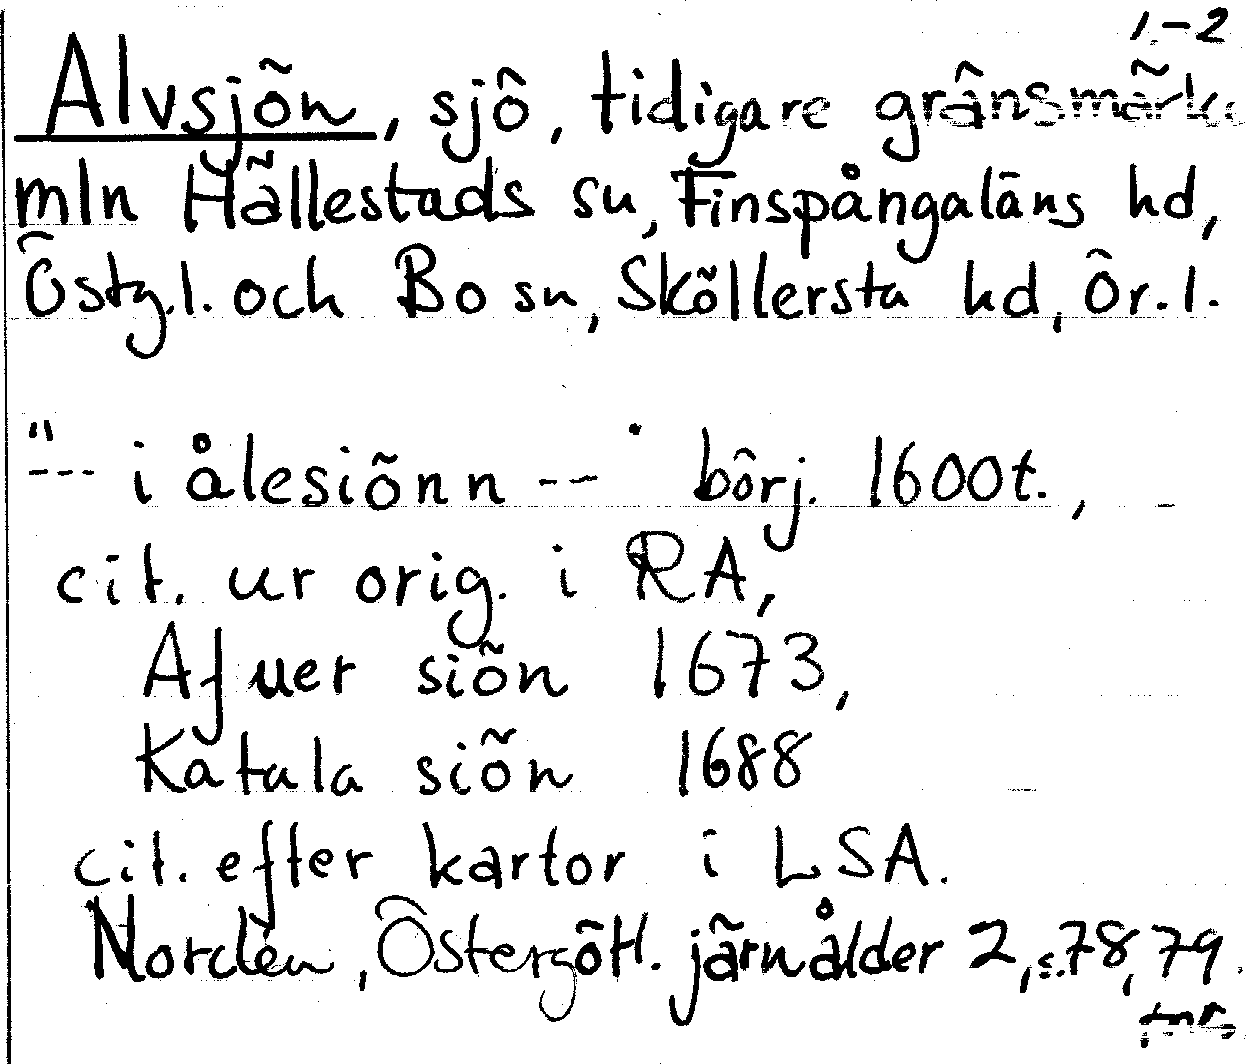 1.-2
Alvsjön, sjö, tidigare gränsmärke
mln Hällestads sn, Finspångaläns hd,
Östg.l. och Bo sn, Sköllersta hd, Ör.l.
"--- i ålesiönn ---" börj. 1600t.,
cit. ur orig. i RA,
Afuer siön 1673,
Katala siön 1688
cit. efter kartor i LSA.
Nordén, Östergötl. järnålder 2, s.78, 79